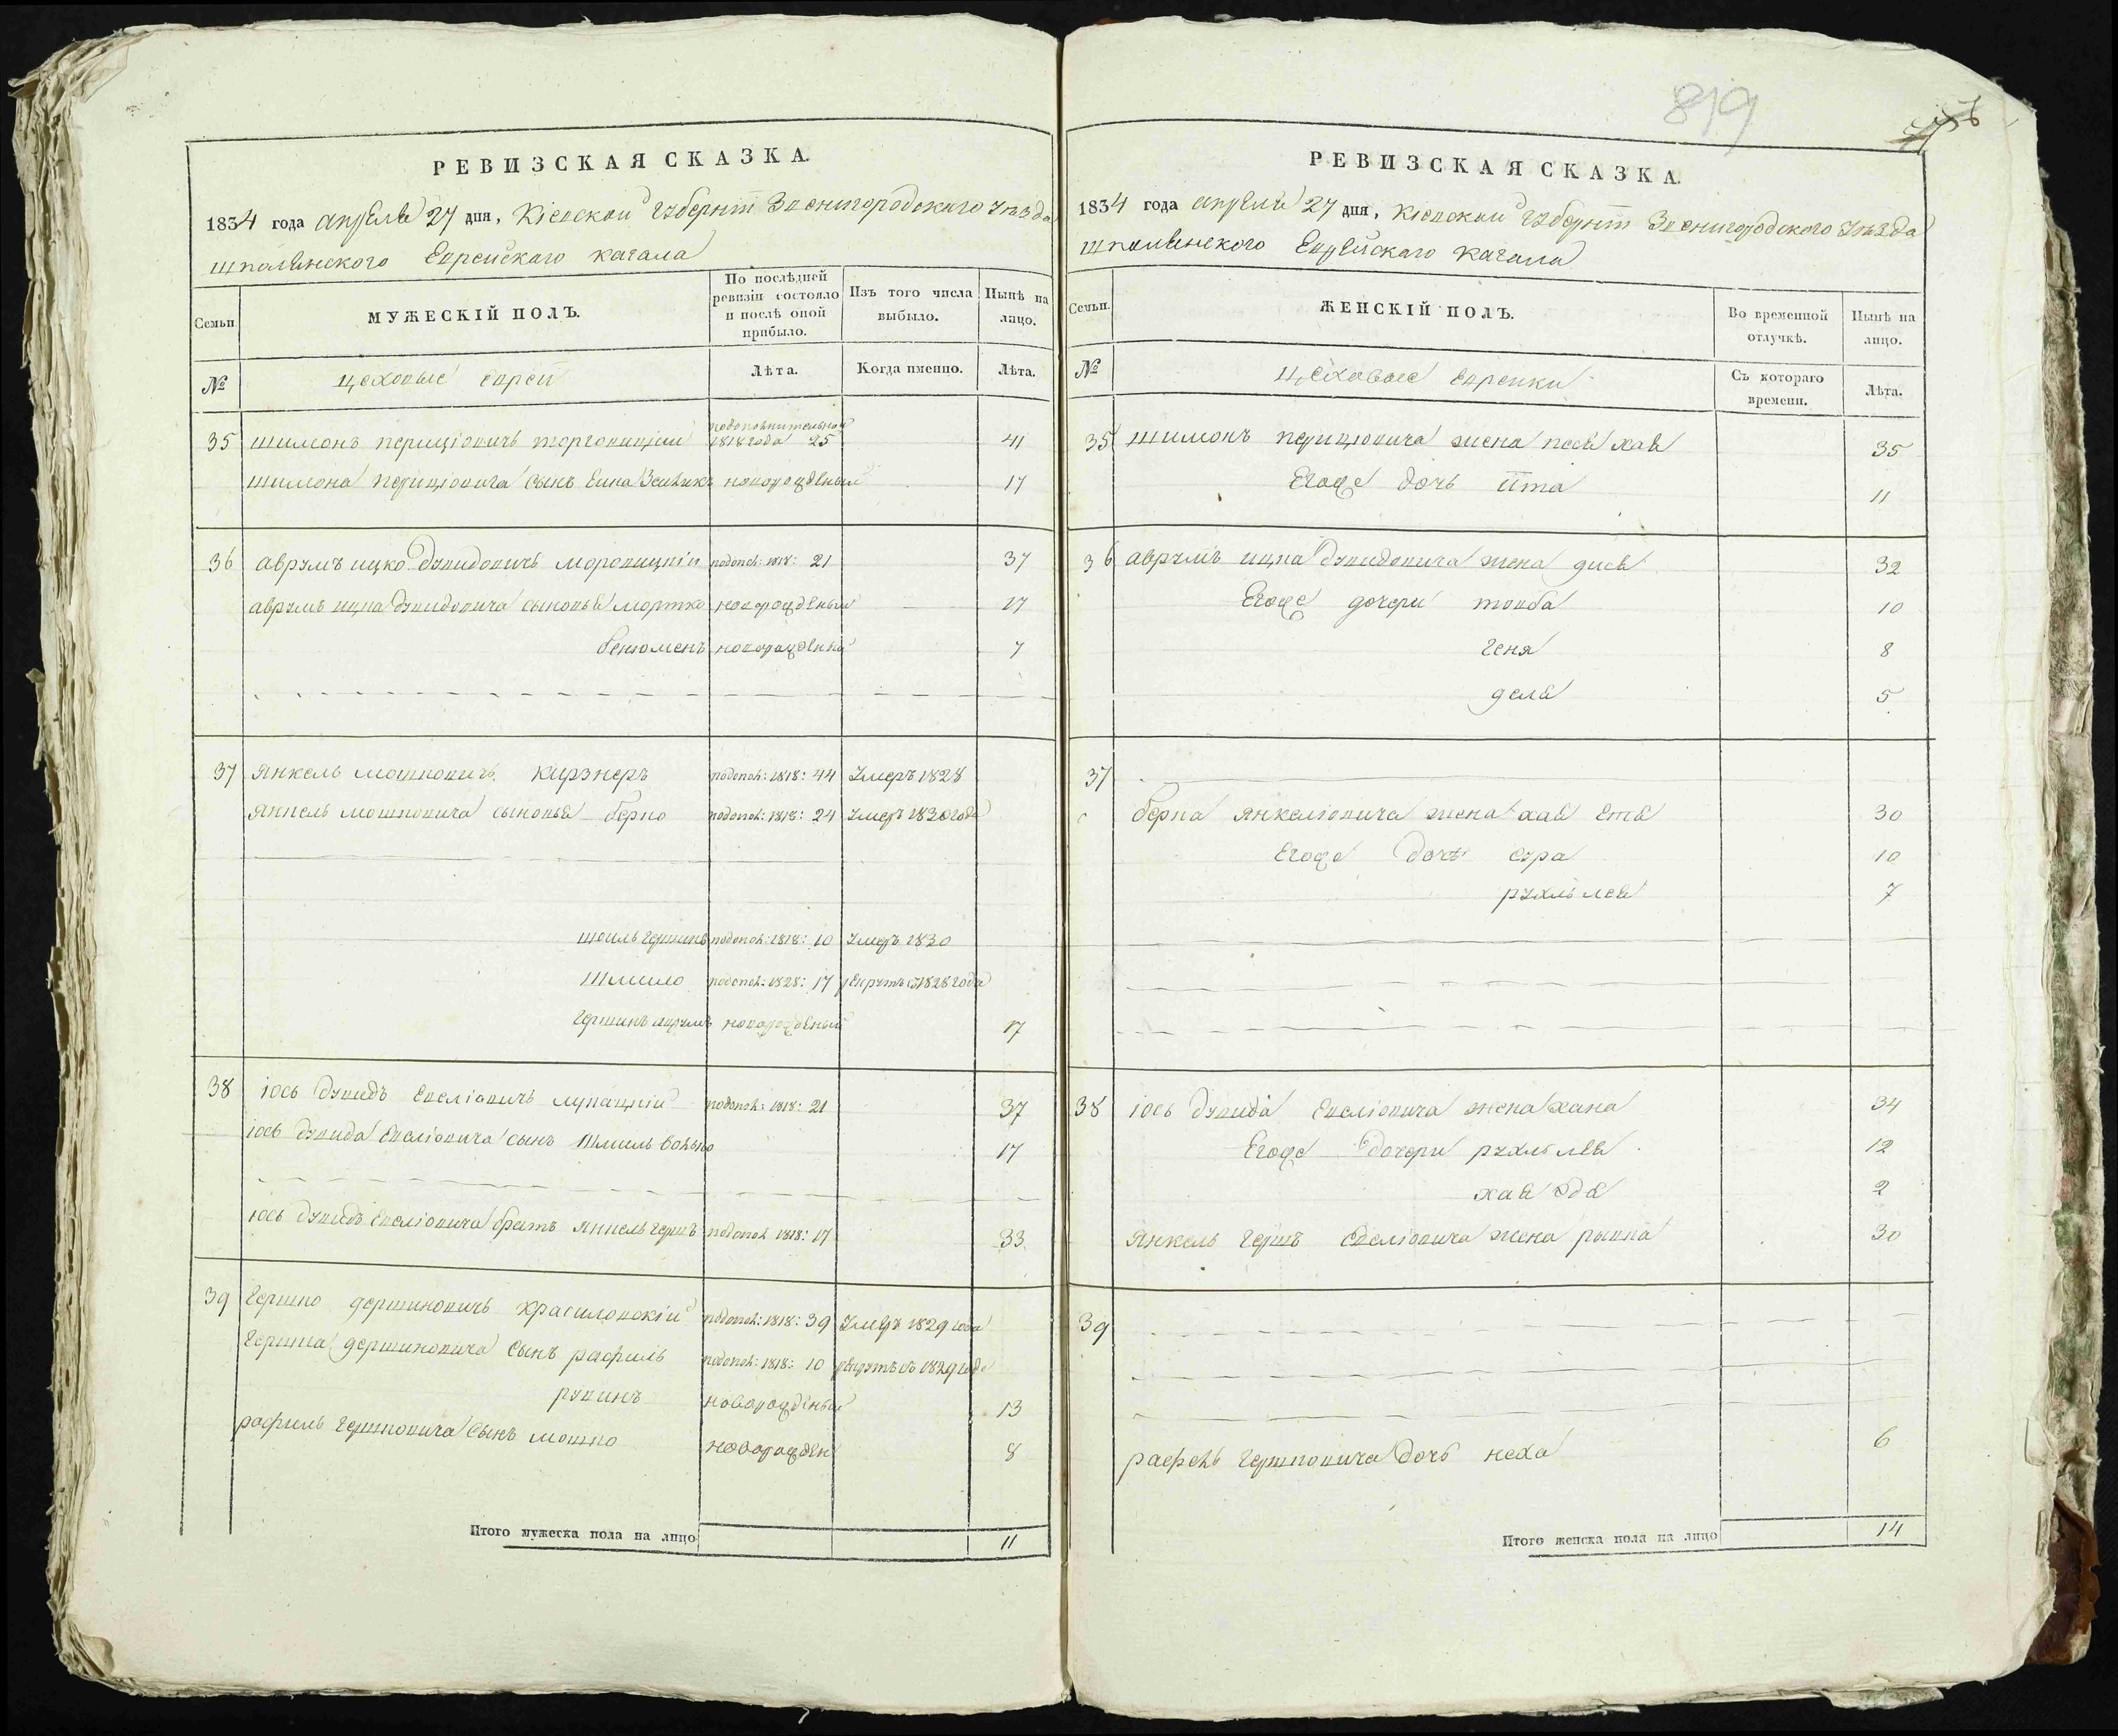 819
РЕВИЗСКАЯ СКАЗКА.
1834 года апреля 27 дня, Кіевской губерніи Звенигородскаго уезда
шполянского Еврейскаго кагала
Семьи.
МУЖЕСКІЙ ПОЛЪ.
По послѣдней ревизіи состояло и послѣ оной прибыло.
Изъ того числа выбыло.
Нынѣ на лицо.
№
цеховые евреи
Лѣта.
Когда именно.
Лѣта.
подополнительной
35 шимонъ периціовичь торговицкій 1818 года 25 41
шимона периціовича сынъ новорожденый 17
36 аврумъ ицко Дувидовичь моровицкій подопол: 1818: 21 37
аврумъ ицка Дувидовича сыновья мортко новорожденый 17
бенюменъ новорожденый 7
37 Янкель мошковичь кирзнеръ подопол: 1818: 44 Умеръ 1828
Янкель мошковича сыновья берко подопол: 1818: 24 Умеръ 1830 года
подопол: 1818: 10 Умеръ 1830
Шмило подопол: 1828: 17 рекрутъ съ 1828 года
аврумъ новорожденый 17
38 іось Дувидъ Евеліовичь лупацкій подопол: 1818: 21 37
іось Дувида Евеліовича сынъ Шмиль 17
іось Дувидъ Евеліовича братъ Янкель гершъ подопол 1818: 17 33
39 Гершко гершиковичь красиловскій подопол: 1818: 39 Умеръ 1829 года
Гершка гершиковича сынъ рафиль подопол: 1818: 10 рекрутъ съ 1829 года
рувинъ новорожденый 13
рафиль Гершковича сынъ мошко новорожден 8
Итого мужеска пола на лицо 11
РЕВИЗСКАЯ СКАЗКА.
1834 года апреля 27 дня, Кіевской губерніи Звенигородского уезда
шполянского Еврейскаго кагала
Семьи.
ЖЕНСКІЙ ПОЛЪ.
Во временной отлучкѣ.
Нынѣ на лицо.
№
цеховые еврейки
Съ котораго времени.
Лѣта.
35 шимонъ периціовича жена песя хая 35
Егоже дочь ита 11
36 аврумъ ицка Дувидовича жена дися 32
Егоже дочери товба 10
геня 8
деля 5
37
берка янкеліовича жена хая етя 30
Егоже дочь сура 10
рухль лея 7
38 іось Дувида Евеліовича жена хана 34
Егоже дочери рухль лея 12
хая 2
Янкель гершъ Евеліовича жена рывка 30
39
рафель Гершковича дочь неха 6
Итого женска пола на лицо 14